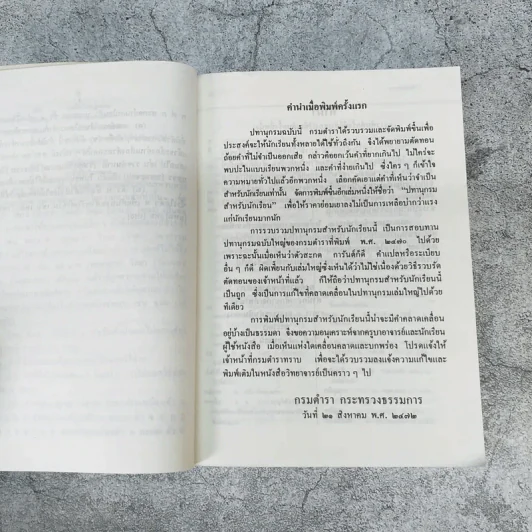 คำนำเมื่อพิมพ์ครั้งแรก
ปทานุกรมฉบับนี้ กรมตำราได้รวบรวมและจัดพิมพ์ขึ้นเพื่อ
ประสงค์จะให้นักเรียนทั้งหลายได้ใช้ทั่วถึงกัน จึงได้พยายามตัดทอน
ถ้อยคำที่ไม่จำเป็นออกเสีย กล่าวคือยกเว้นคำที่ยากเกินไป ไม่ใคร่จะ
พบปะในแบบเรียนพวกหนึ่ง และคำที่ง่ายเกินไป ซึ่งใคร ๆ ก็เข้าใจ
ความหมายทั่วไปแล้วอีกพวกหนึ่ง เลือกคัดเอาแต่คำที่เห็นว่าจำเป็น
สำหรับนักเรียนเท่านั้น จัดการพิมพ์ขึ้นอีกเล่มหนึ่งให้ชื่อว่า "ปทานุกรม
สำหรับนักเรียน" เพื่อให้ราคาย่อมเยาลงไม่เป็นการเหลือบ่ากว่าแรง
แก่นักเรียนมากนัก
การรวบรวมปทานุกรมสำหรับนักเรียนนี้ เป็นการสอบทาน
ปทานุกรมฉบับใหญ่ของกรมตำราที่พิมพ์ พ.ศ. ๒๔๗๐ ไปด้วย
เพราะฉะนั้นเมื่อเห็นว่าตัวสะกด การันต์ก็ดี คำแปลหรือระเบียบ
อื่น ๆ ก็ดี ผิดเพี้ยนกับเล่มใหญ่ซึ่งเห็นได้ว่าไม่ใช่เนื่องด้วยวิธีรวบรัด
ตัดทอนของเจ้าหน้าที่แล้ว ก็ให้ถือว่าปทานุกรมสำหรับนักเรียนนี้
เป็นถูก ซึ่งเป็นการแก้ไขที่คลาดเคลื่อนในปทานุกรมเล่มใหญ่ไปด้วย
ทีเดียว
การพิมพ์ปทานุกรมสำหรับนักเรียนนี้น่าจะมีคำคลาดเคลื่อน
อยู่บ้างเป็นธรรมดา จึงขอความอนุเคราะห์จากครูบาอาจารย์และนักเรียน
ผู้ใช้หนังสือ เมื่อเห็นแห่งใดเคลื่อนคลาดและบกพร่อง โปรดแจ้งให้
เจ้าหน้าที่กรมตำราทราบ เพื่อจะได้รวบรวมลงแจ้งความแก้ไขและ
พิมพ์เติมในหนังสือวิทยาจารย์เป็นคราว ๆ ไป
กรมตำรา กระทรวงธรรมการ
วันที่ ๒๑ สิงหาคม พ.ศ. ๒๔๗๒